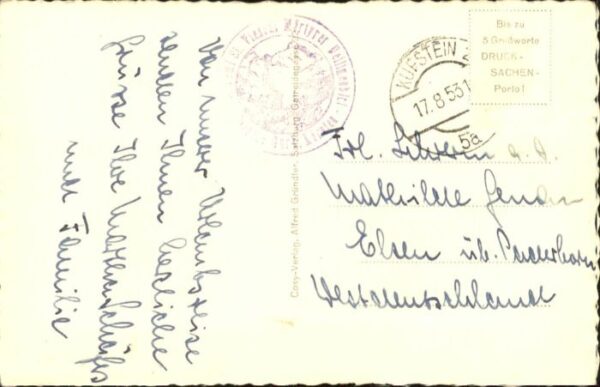 Von unserer Urlaubsreise
senden Ihnen herzliche
Grüsse Ihre
und Familie
Cosy-Verlag, Alfred Gründler, Salzburg, Getreidegasse
KUFSTEIN
17.8.53
5a
Bis zu
5 Grußworte
DRUCK-
SACHEN-
Porto!
Frl. Lehrerin a. D.
Mathilde
Elsen üb. Paderborn
Westdeutschland